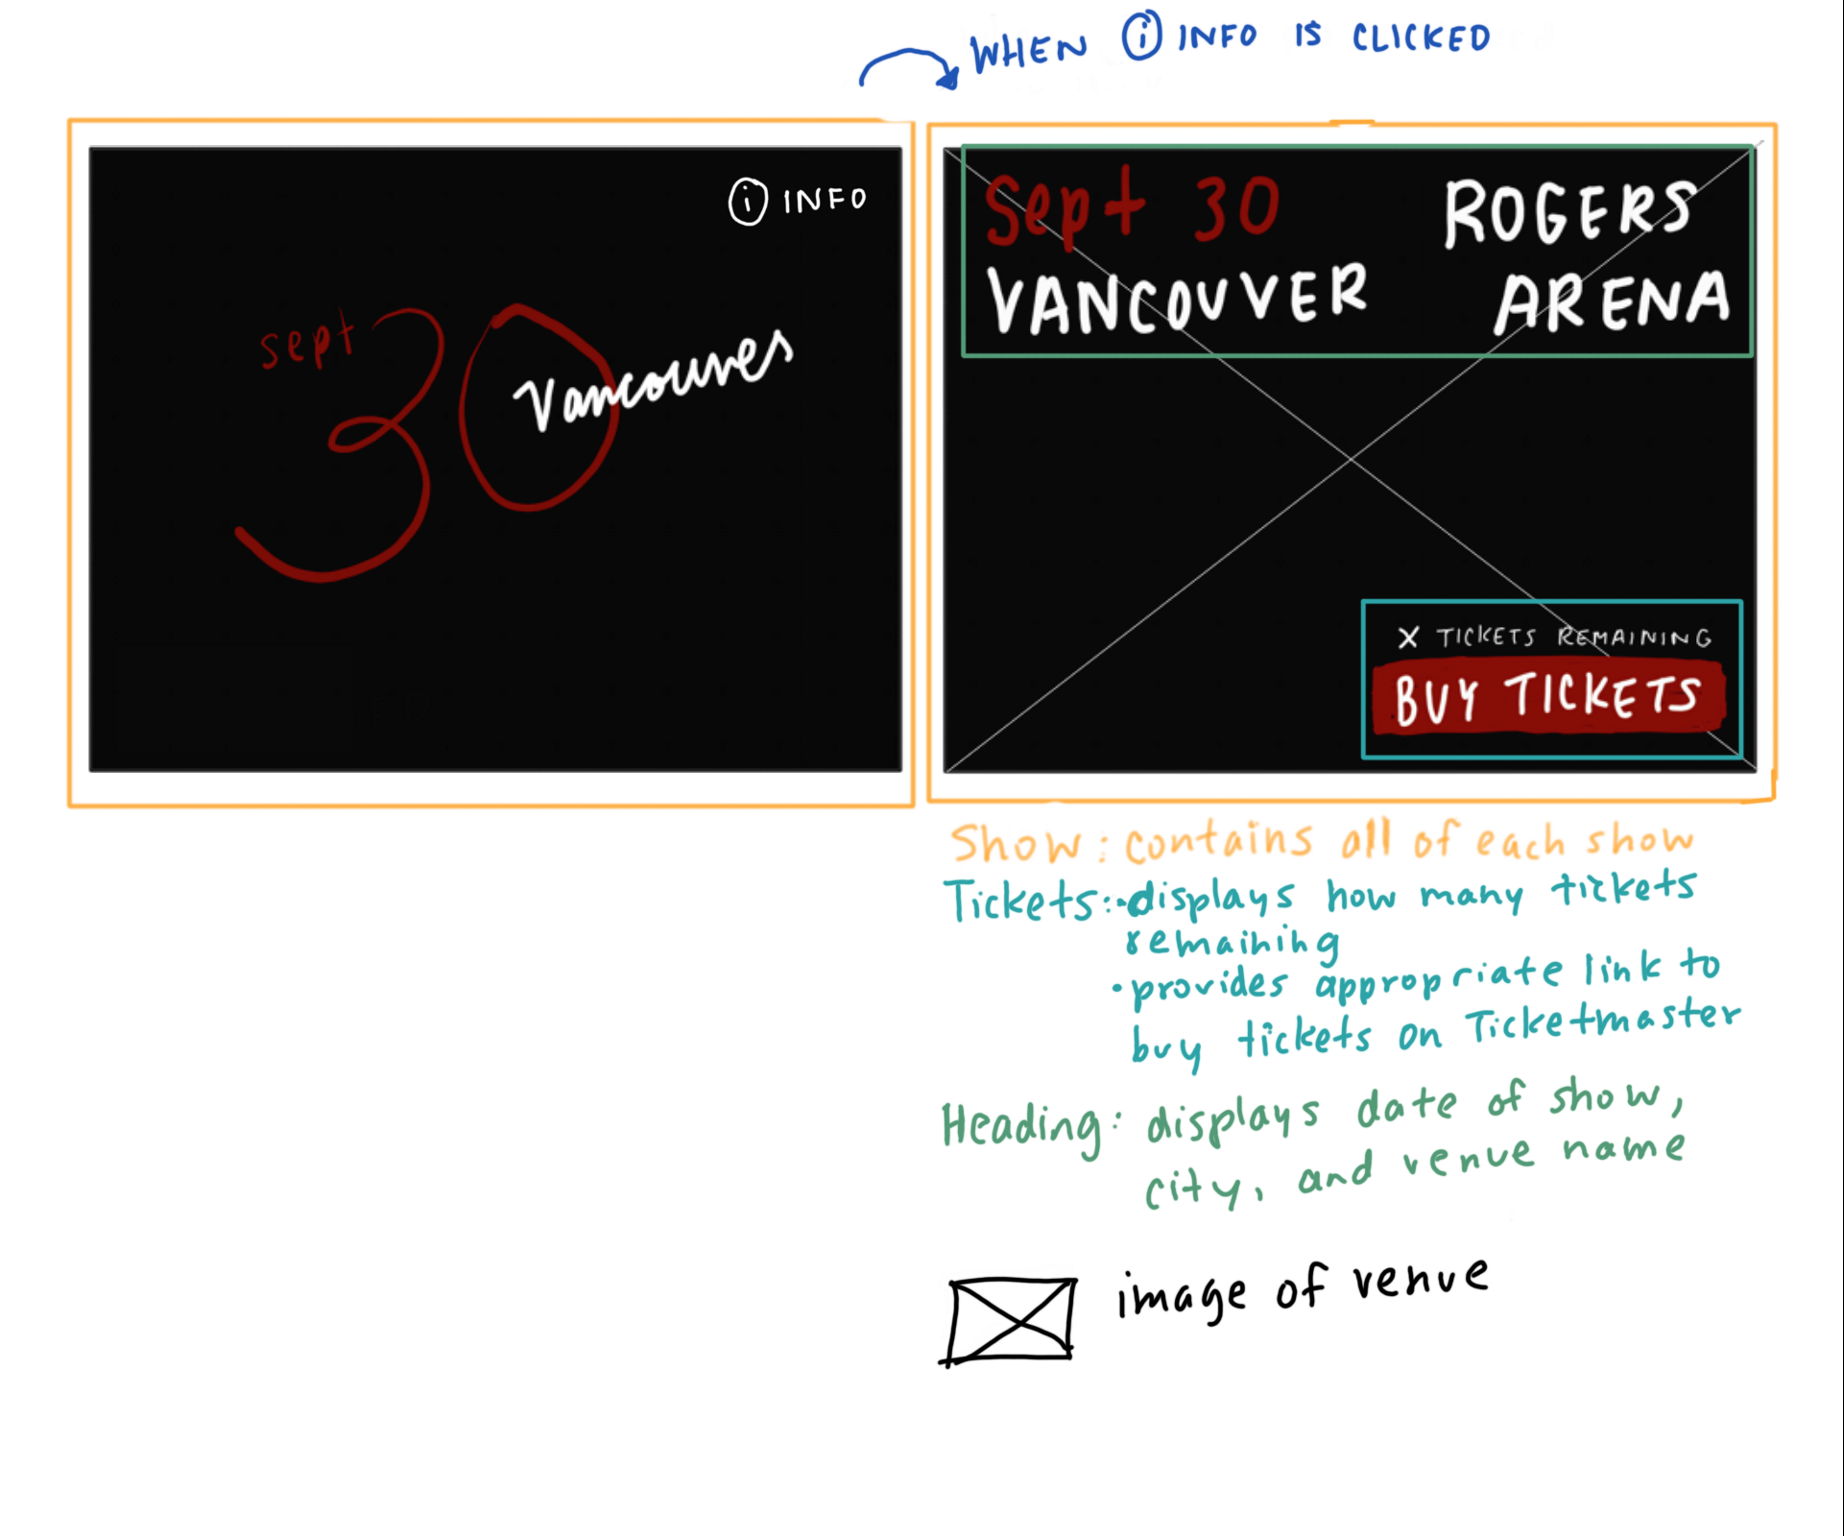 WHEN ⓘ INFO IS CLICKED
ⓘ INFO
sept
30
Vancouver
Sept 30
VANCOUVER
ROGERS
ARENA
X TICKETS REMAINING
BUY TICKETS
Show: contains all of each show
Tickets: • displays how many tickets
remaining
• provides appropriate link to
buy tickets on Ticketmaster
Heading: displays date of show,
city, and venue name
image of venue